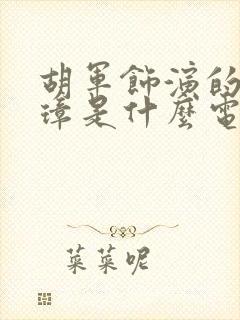 胡軍飾演的
璋是什麼電
菜菜呢